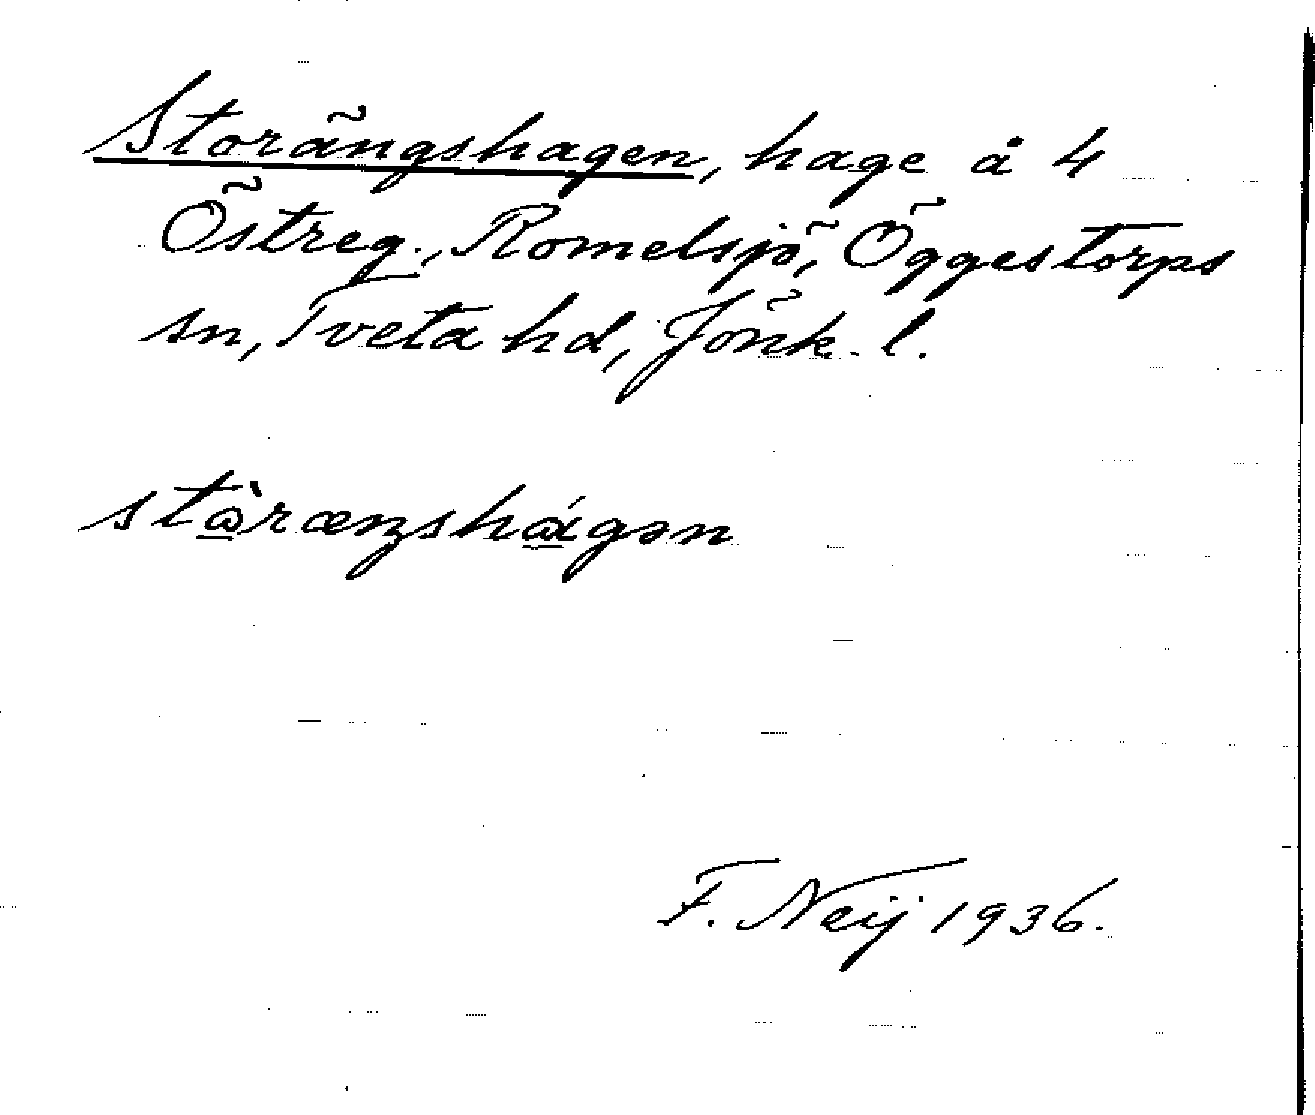 Storängshagen, hage å 4
Östreg., Romelsjö, Öggestorps
sn, Tveta hd, Jönk. l.
stàrænshágən
F. Neij 1936.